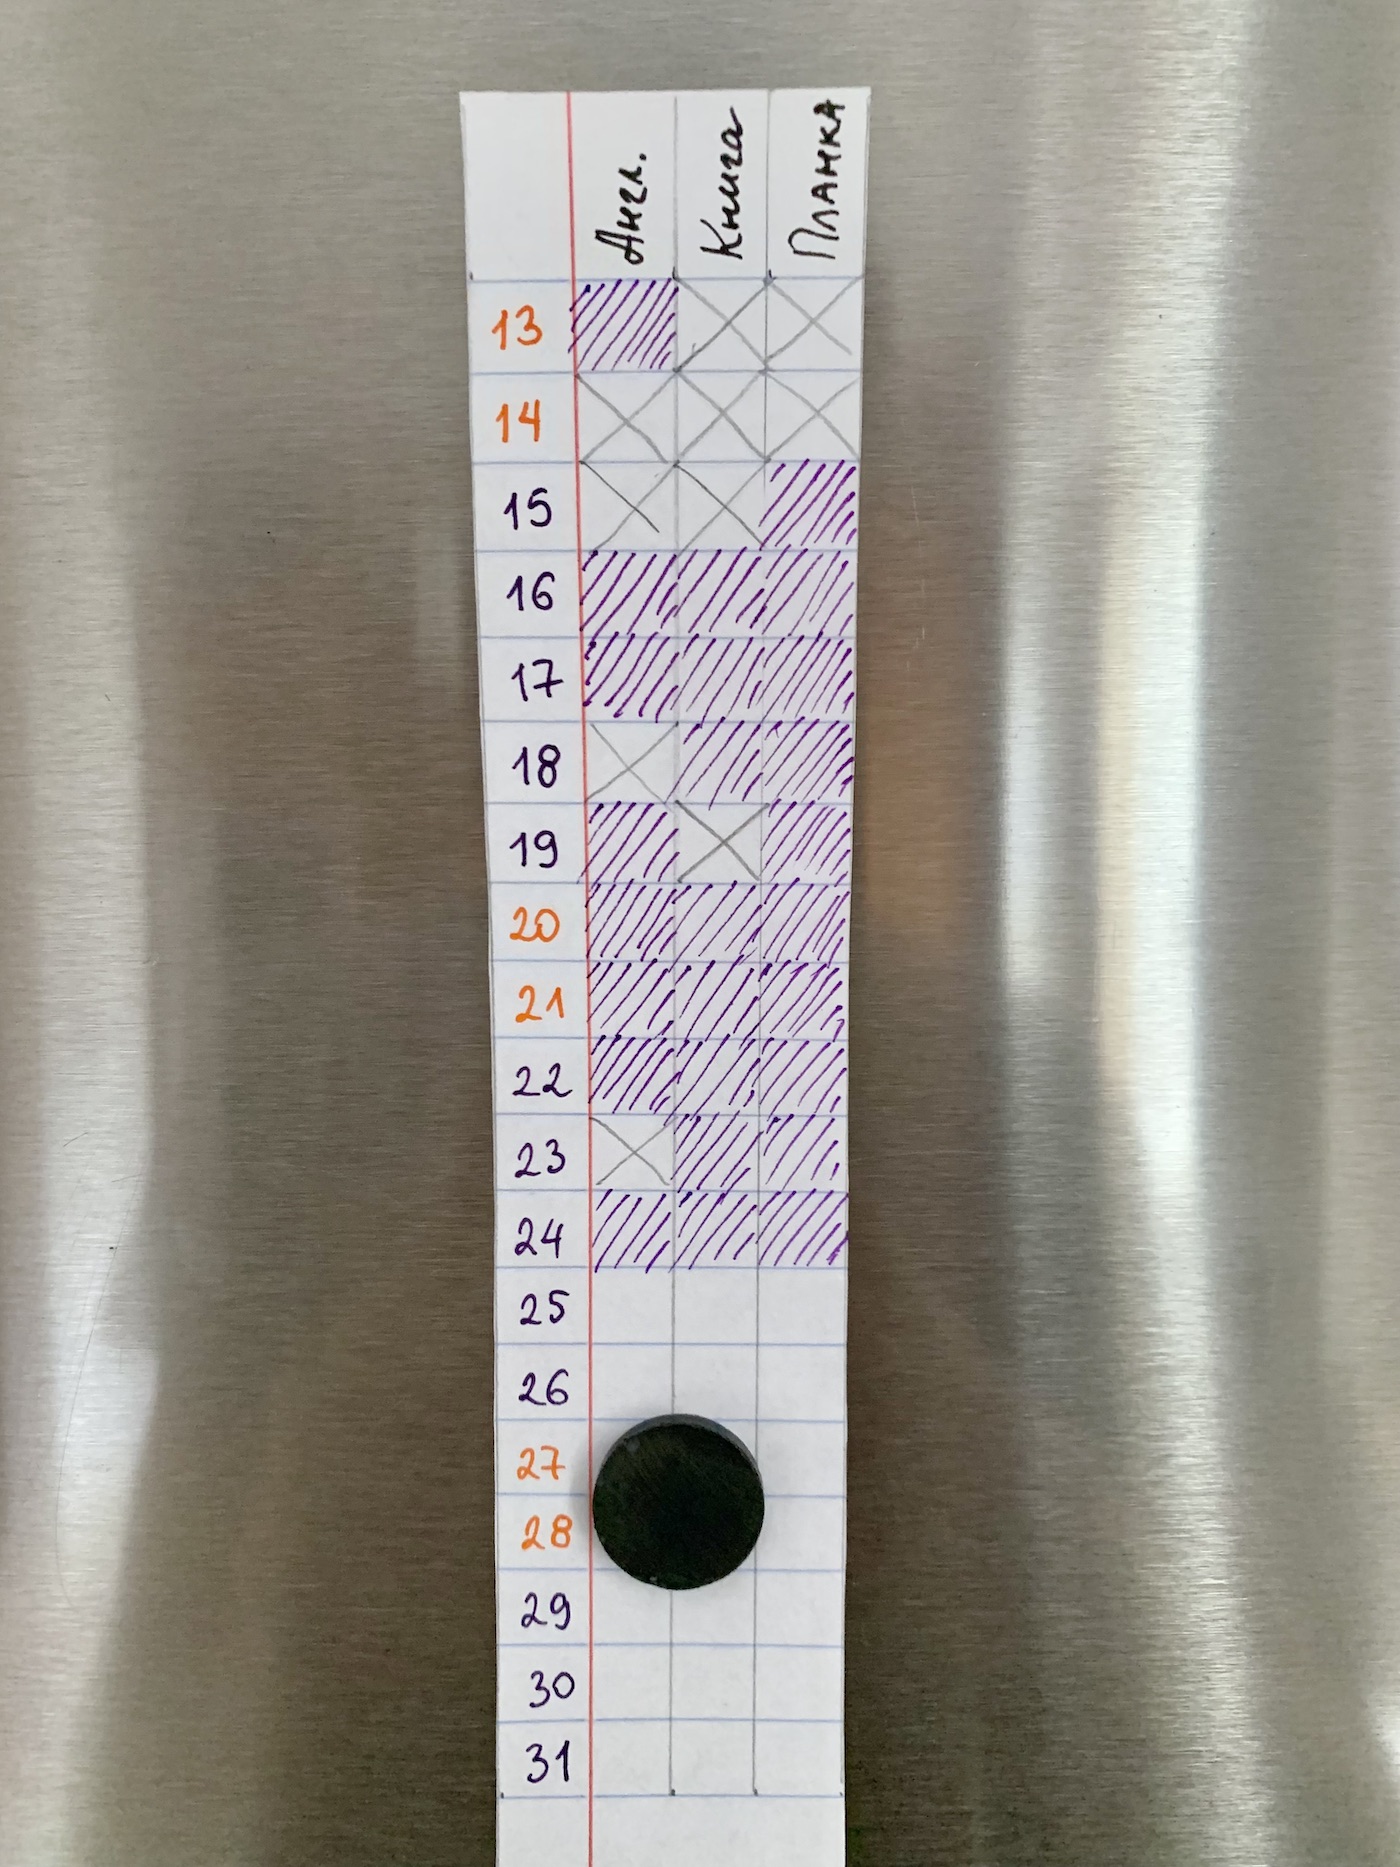 Англ. Книга Планка
13
14
15
16
17
18
19
20
21
22
23
24
25
26
27
28
29
30
31